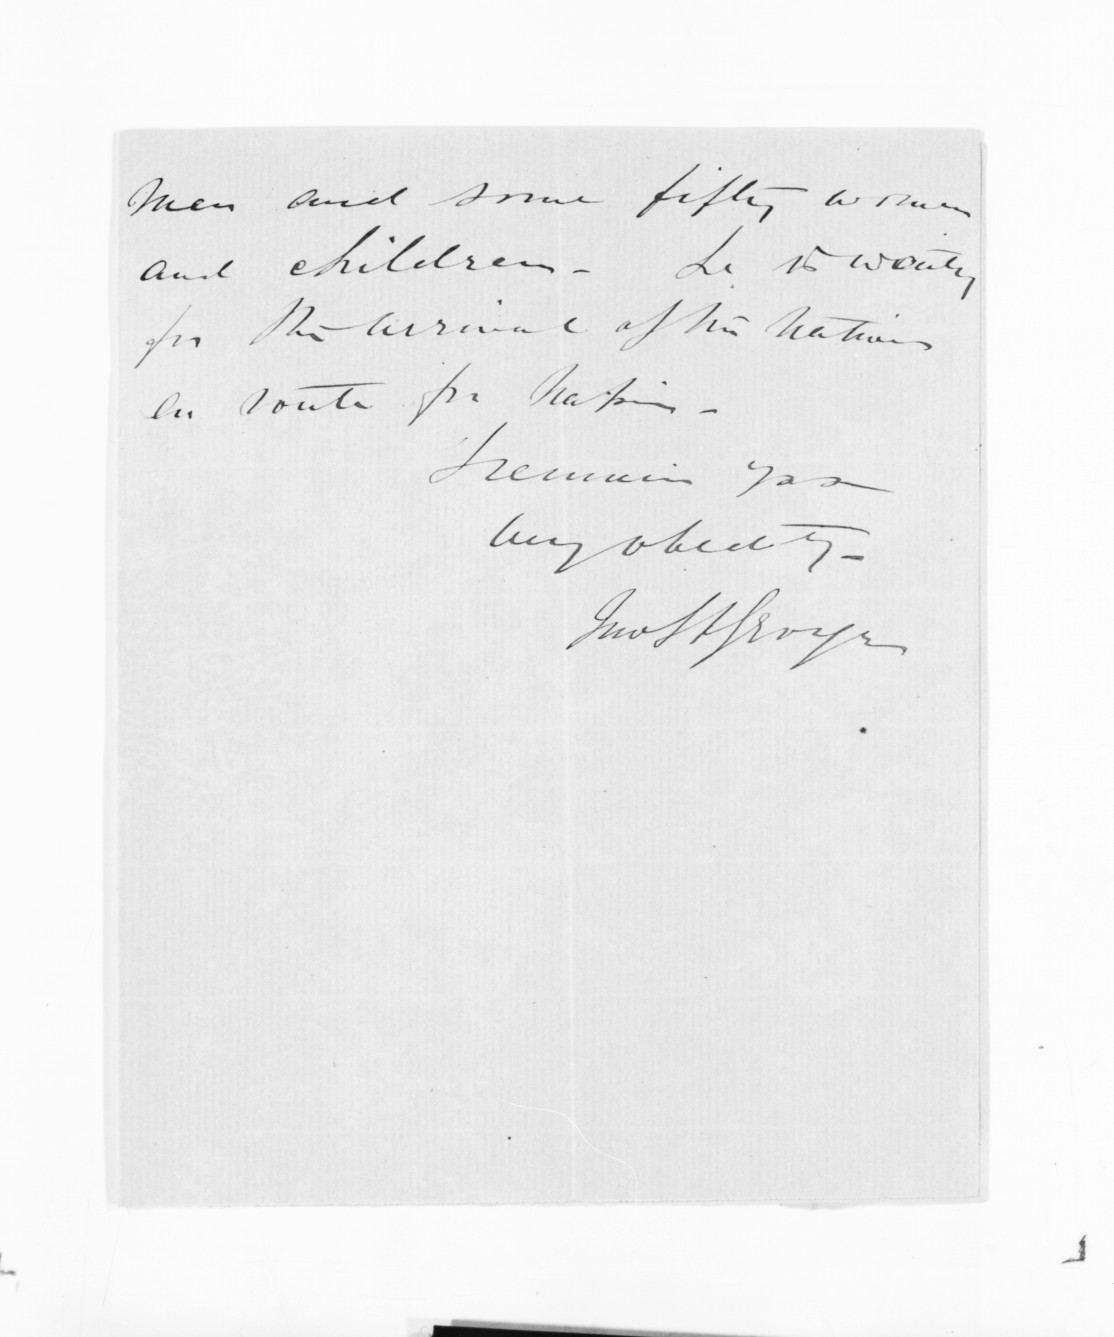 men and some fifty women
and children - he is waiting
for the arrival of the natives
en route for Napier -
I remain yrs
very obedtly -
Jno St George